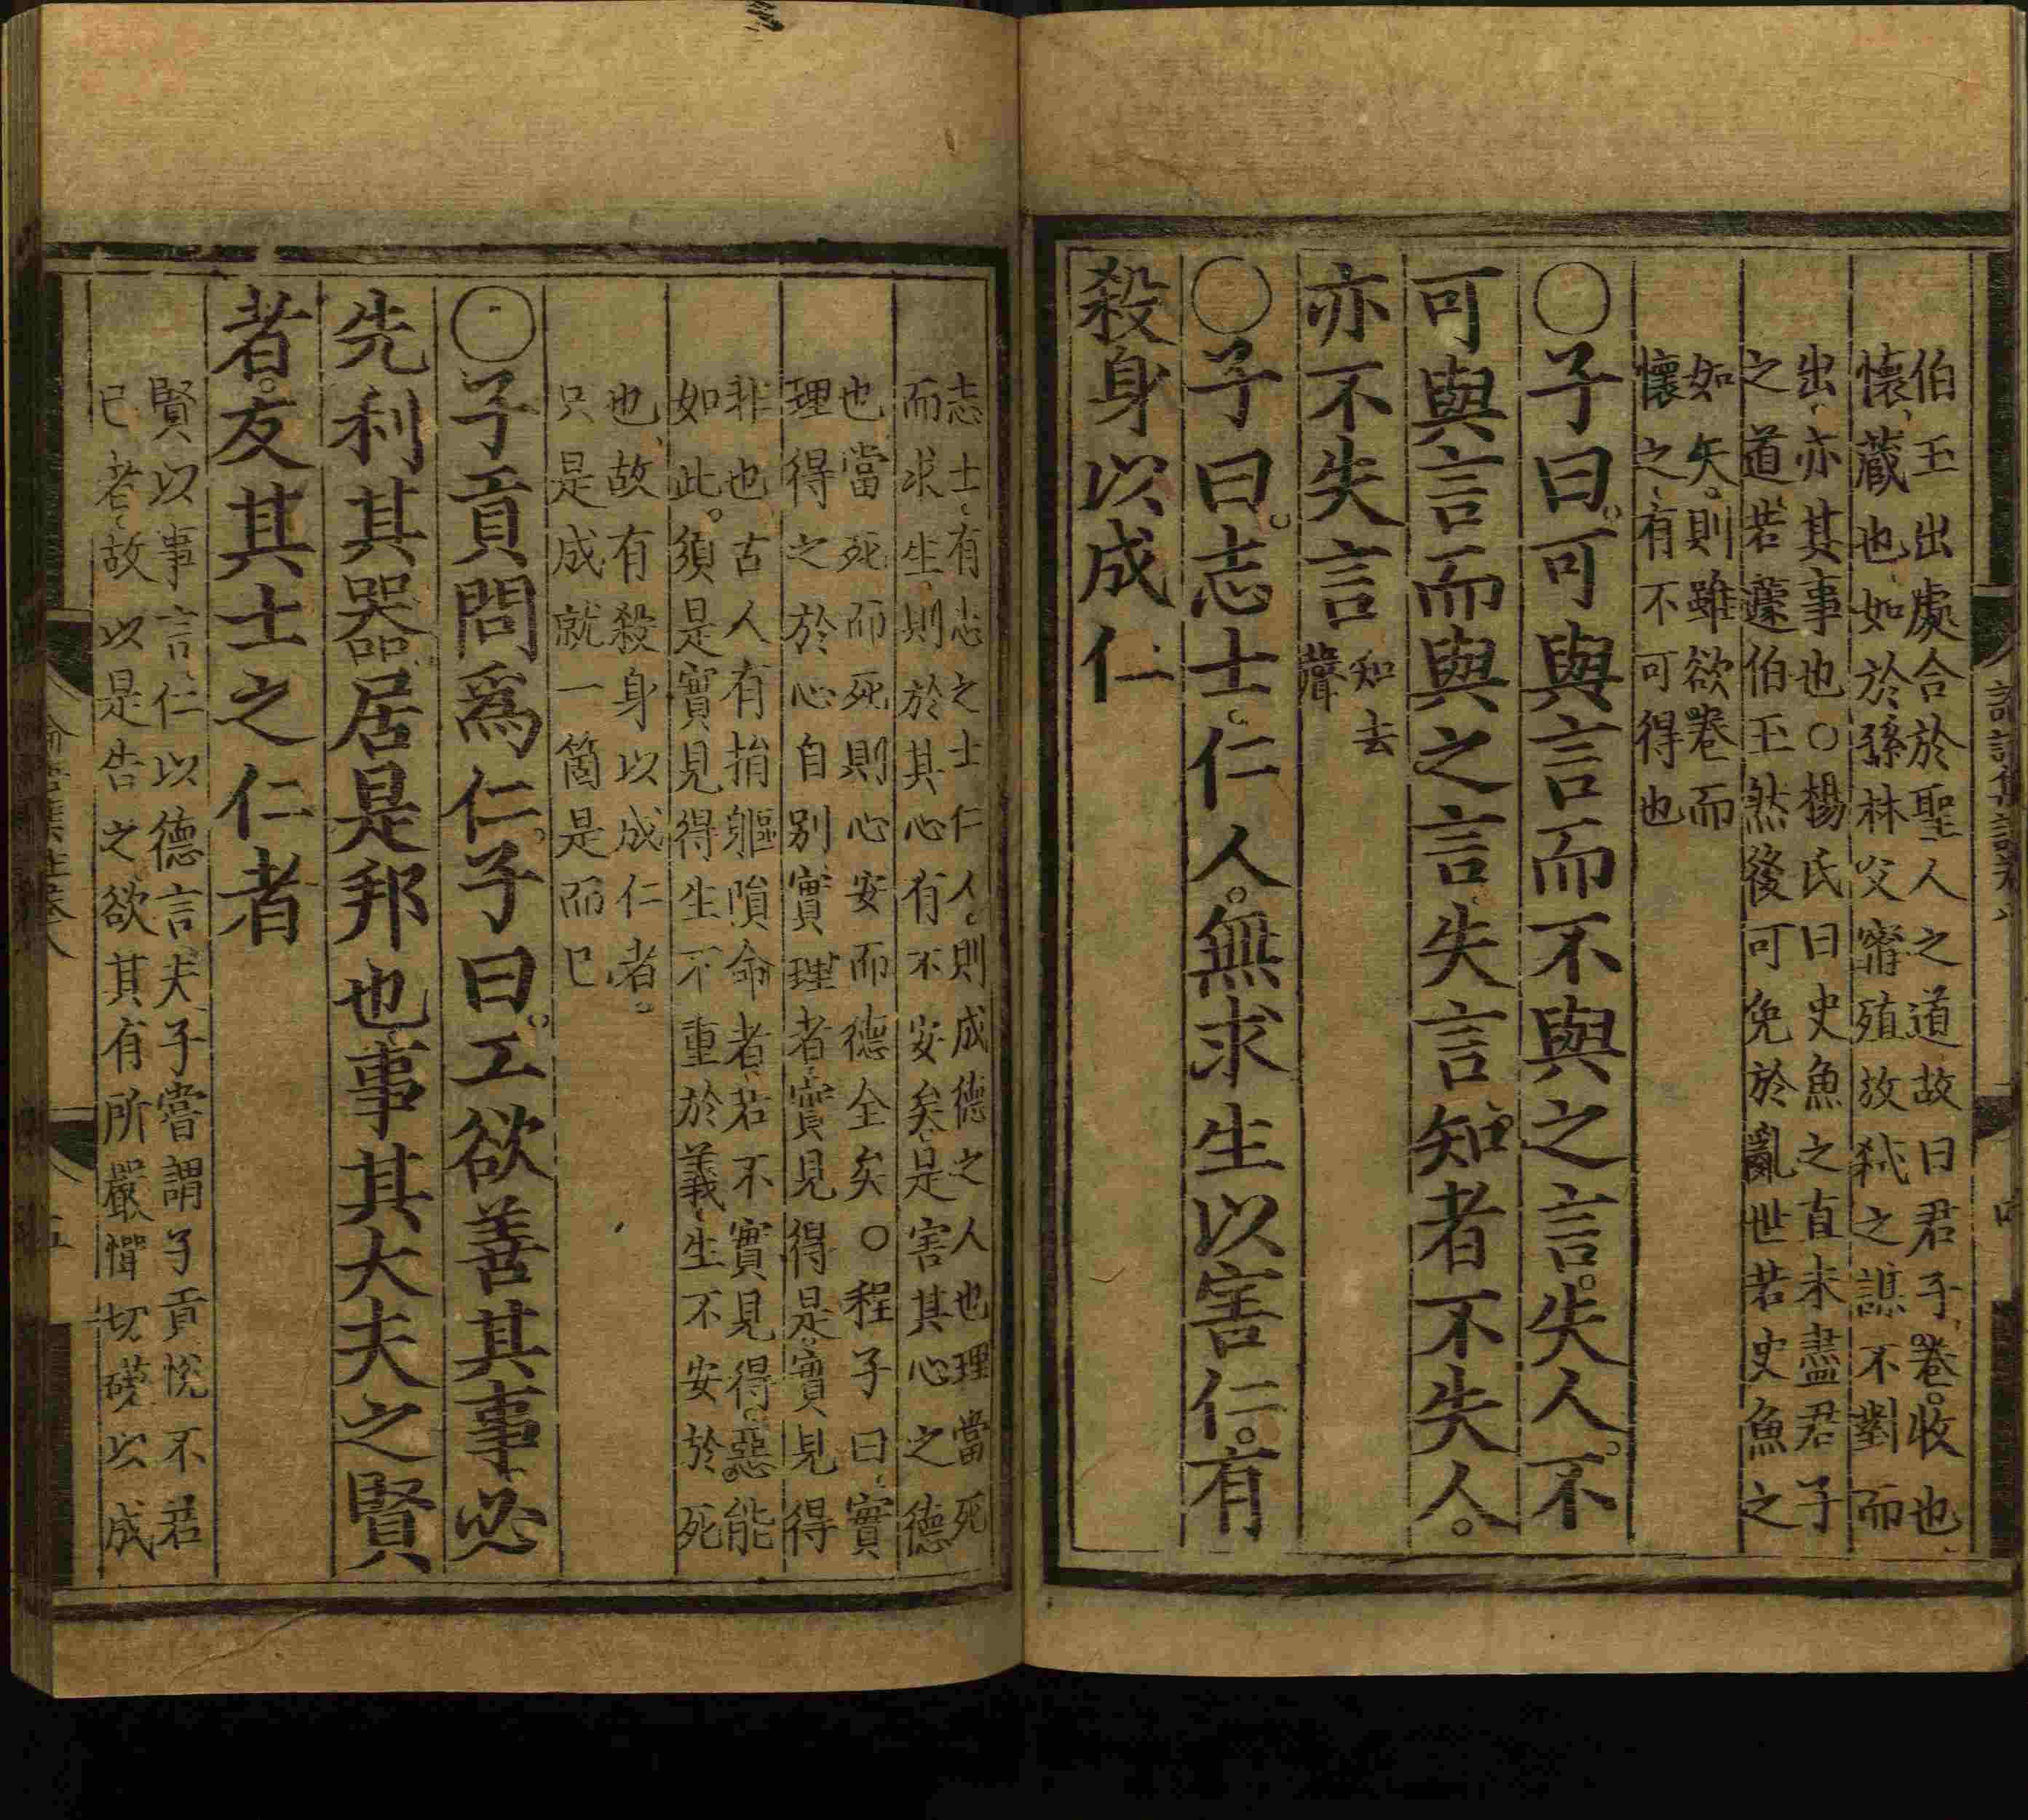 伯玉出處合於聖人之道故曰君子卷收也
懷藏也如於孫林父甯殖放弒之謀不對而
出亦其事也○楊氏曰史魚之直未盡君子
之道若蘧伯玉然後可免於亂世若史魚之
如矢則雖欲卷而
懷之有不可得也
○子曰可與言而不與之言失人不
可與言而與之言失言知者不失人
亦不失言
知去
聲
○子曰志士仁人無求生以害仁有
殺身以成仁
志士有志之士仁人則成德之人也理當死
而求生則於其心有不安矣是害其心之德
也當死而死則心安而德全矣○程子曰實
理得之於心自別實理者實見得是實見得
非也古人有捐軀隕命者若不實見得惡能
如此須是實見得生不重於義生不安於死
也故有殺身以成仁者
只是成就一箇是而已
○子貢問爲仁子曰工欲善其事必
先利其器居是邦也事其大夫之賢
者友其士之仁者
賢以事言仁以德言夫子嘗謂子貢悅不若
已者故以是告之欲其有所嚴憚切磋以成